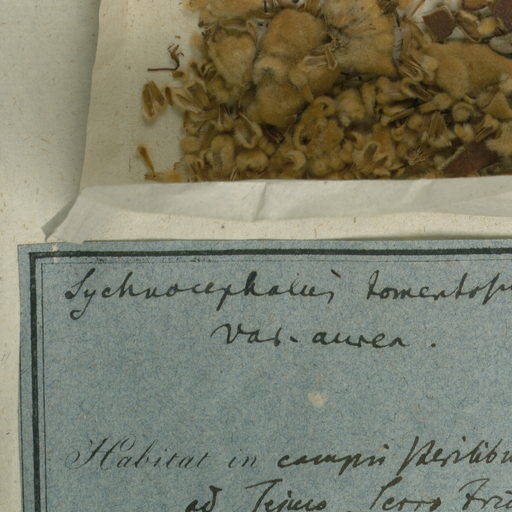 Sychnocephalus tomentosu
var. aurea.
Habitat in campis sterilibu
ad Tejuco, Serro Fri